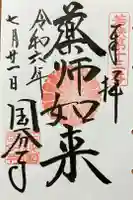 奉拝
薬師如来
令和六年
七月廿一日
国分寺